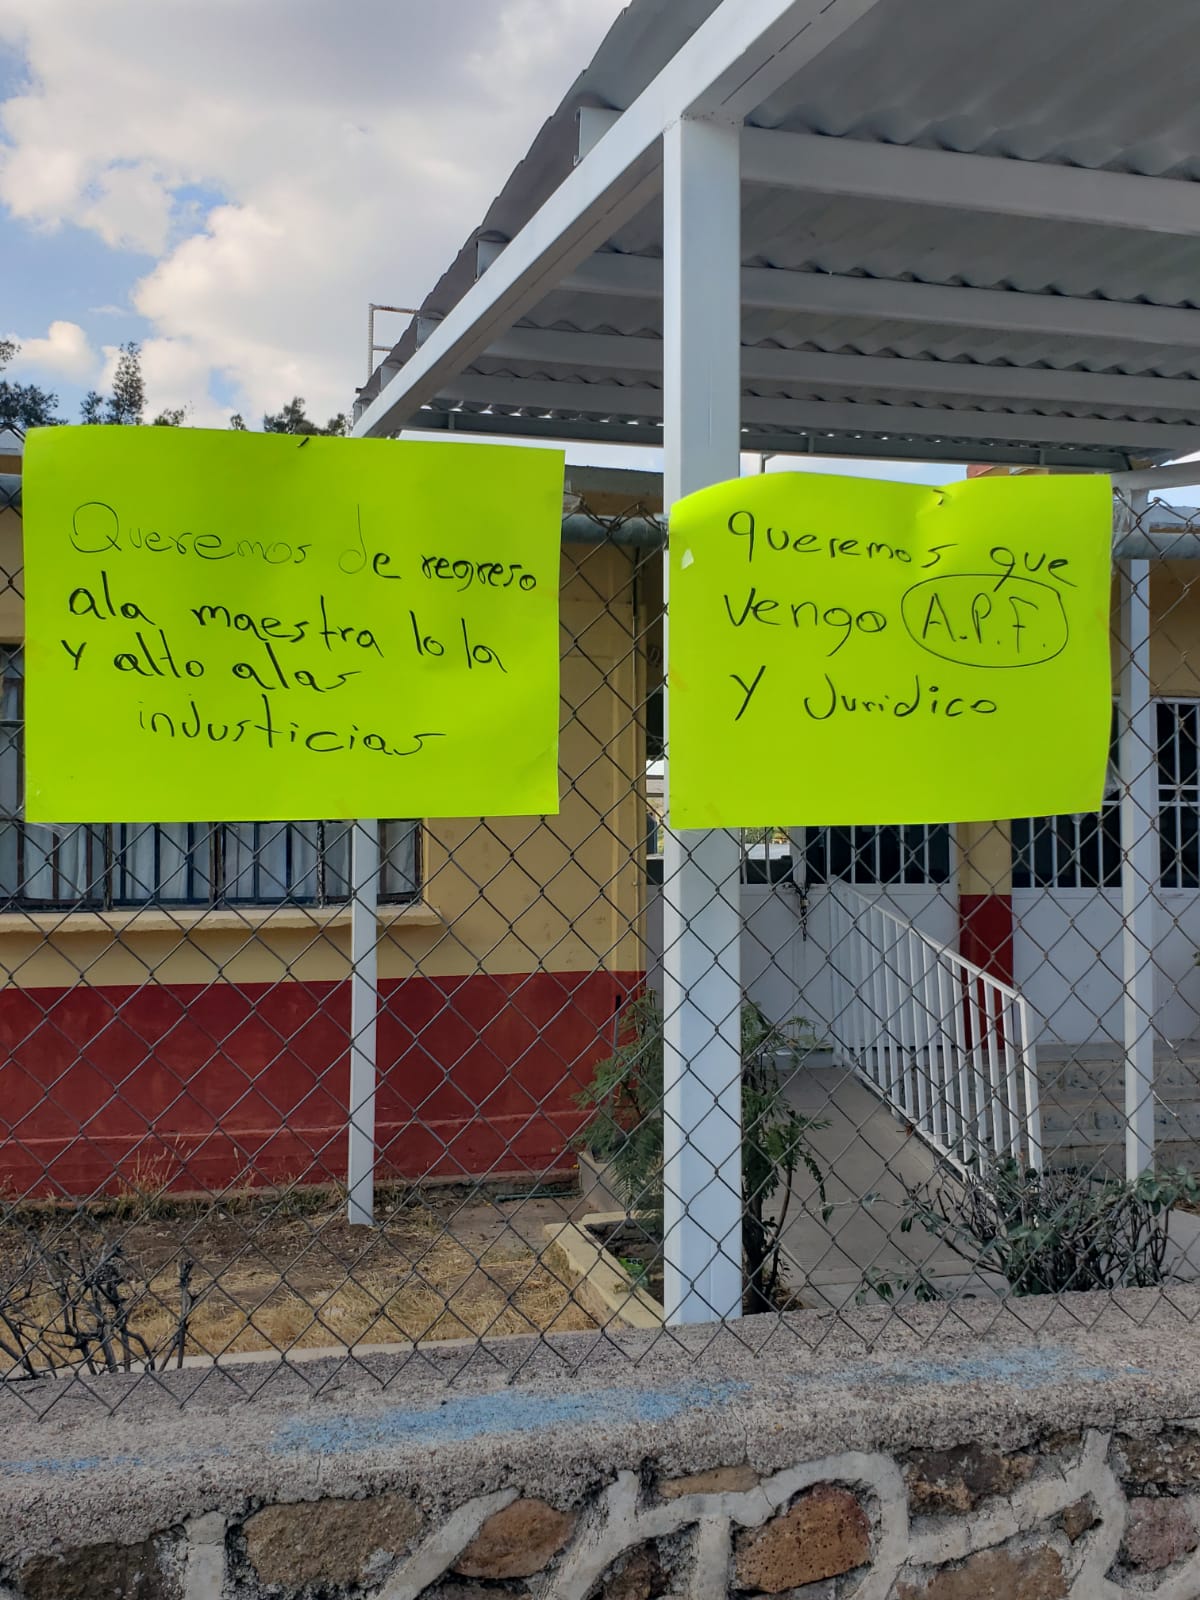 Queremos de regreso
ala maestra lo la
y alto alas
injusticias
queremos que
vengo A.P.F.
y Juridico